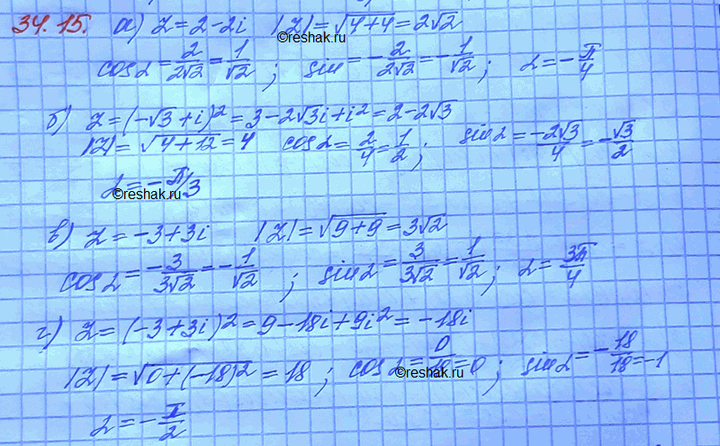 34.15. а) z = 2-2i |z| = √(4+4) = 2√2
©reshak.ru
cos α = 2/(2√2) = 1/√2 ; sin = -2/(2√2) = -1/√2 ; α = -π/4
б) z = (-√3+i)² = 3-2√3i+i² = 2-2√3
|z| = √(4+12) = 4 cos α = 2/4 = 1/2 ; sin α = -2√3/4 = -√3/2
α = -π/3
©reshak.ru
в) z = -3+3i |z| = √(9+9) = 3√2
cos α = -3/(3√2) = -1/√2 ; sin α = 3/(3√2) = 1/√2 ; α = 3π/4
г) z = (-3+3i)² = 9-18i+9i² = -18i
|z| = √(0+(-18)²) = 18 ; cos α = 0/18 = 0 ; sin α = -18/18 = -1
©reshak.ru
α = -π/2